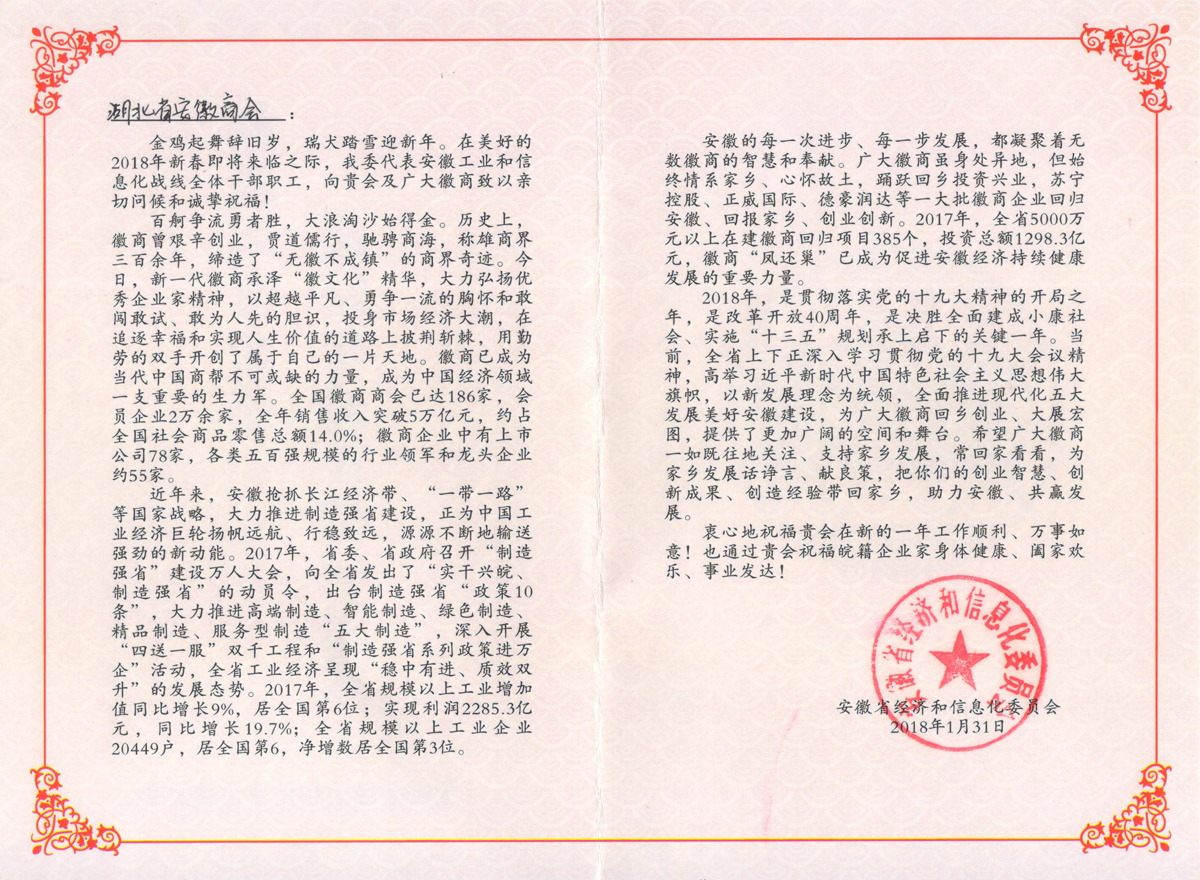 湖北省安徽商会：
金鸡起舞辞旧岁，瑞犬踏雪迎新年。在美好的
2018年新春即将来临之际，我委代表安徽工业和信
息化战线全体干部职工，向贵会及广大徽商致以亲
切问候和诚挚祝福！
百舸争流勇者胜，大浪淘沙始得金。历史上，
徽商曾艰辛创业，贾道儒行，驰骋商海，称雄商界
三百余年，缔造了“无徽不成镇”的商界奇迹。今
日，新一代徽商承泽“徽文化”精华，大力弘扬优
秀企业家精神，以超越平凡、勇争一流的胸怀和敢
闯敢试、敢为人先的胆识，投身市场经济大潮，在
追逐幸福和实现人生价值的道路上披荆斩棘，用勤
劳的双手开创了属于自己的一片天地。徽商已成为
当代中国商帮不可或缺的力量，成为中国经济领域
一支重要的生力军。全国徽商商会已达186家，会
员企业2万余家，全年销售收入突破5万亿元，约占
全国社会商品零售总额14.0%；徽商企业中有上市
公司78家，各类五百强规模的行业领军和龙头企业
约55家。
近年来，安徽抢抓长江经济带、“一带一路”
等国家战略，大力推进制造强省建设，正为中国工
业经济巨轮扬帆远航、行稳致远，源源不断地输送
强劲的新动能。2017年，省委、省政府召开“制造
强省”建设万人大会，向全省发出了“实干兴皖、
制造强省”的动员令，出台制造强省“政策10
条”，大力推进高端制造、智能制造、绿色制造、
精品制造、服务型制造“五大制造”，深入开展
“四送一服”双千工程和“制造强省系列政策进万
企”活动，全省工业经济呈现“稳中有进、质效双
升”的发展态势。2017年，全省规模以上工业增加
值同比增长9%，居全国第6位；实现利润2285.3亿
元，同比增长19.7%；全省规模以上工业企业
20449户，居全国第6，净增数居全国第3位。
安徽的每一次进步、每一步发展，都凝聚着无
数徽商的智慧和奉献。广大徽商虽身处异地，但始
终情系家乡、心怀故土，踊跃回乡投资兴业，苏宁
控股、正威国际、德豪润达等一大批徽商企业回归
安徽、回报家乡、创业创新。2017年，全省5000万
元以上在建徽商回归项目385个，投资总额1298.3亿
元，徽商“凤还巢”已成为促进安徽经济持续健康
发展的重要力量。
2018年，是贯彻落实党的十九大精神的开局之
年，是改革开放40周年，是决胜全面建成小康社
会、实施“十三五”规划承上启下的关键一年。当
前，全省上下正深入学习贯彻党的十九大会议精
神，高举习近平新时代中国特色社会主义思想伟大
旗帜，以新发展理念为统领，全面推进现代化五大
发展美好安徽建设，为广大徽商回乡创业、大展宏
图，提供了更加广阔的空间和舞台。希望广大徽商
一如既往地关注、支持家乡发展，常回家看看，为
家乡发展话诤言、献良策，把你们的创业智慧、创
新成果、创造经验带回家乡，助力安徽、共赢发
展。
衷心地祝福贵会在新的一年工作顺利、万事如
意！也通过贵会祝福皖籍企业家身体健康、阖家欢
乐、事业发达！
安徽省经济和信息化委员会
安徽省经济和信息化委员会
2018年1月31日